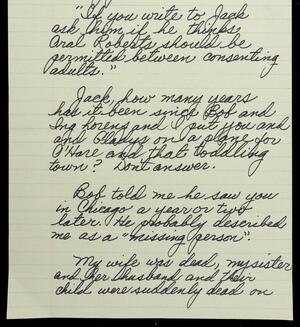 "If you write to Jack
ask him if he thinks
Oral Roberts should be
permitted between consenting
adults."
Jack, how many years
has it been since Bob and
Ing and I put you and
and Gladys on a plane for
O'Hare and that toddling
town? Dont answer.
Bob told me he saw you
in Chicago a year or two
later. He probably described
me as a "missing person".
My wife was dead, my sister
and her husband and their
child were suddenly dead on